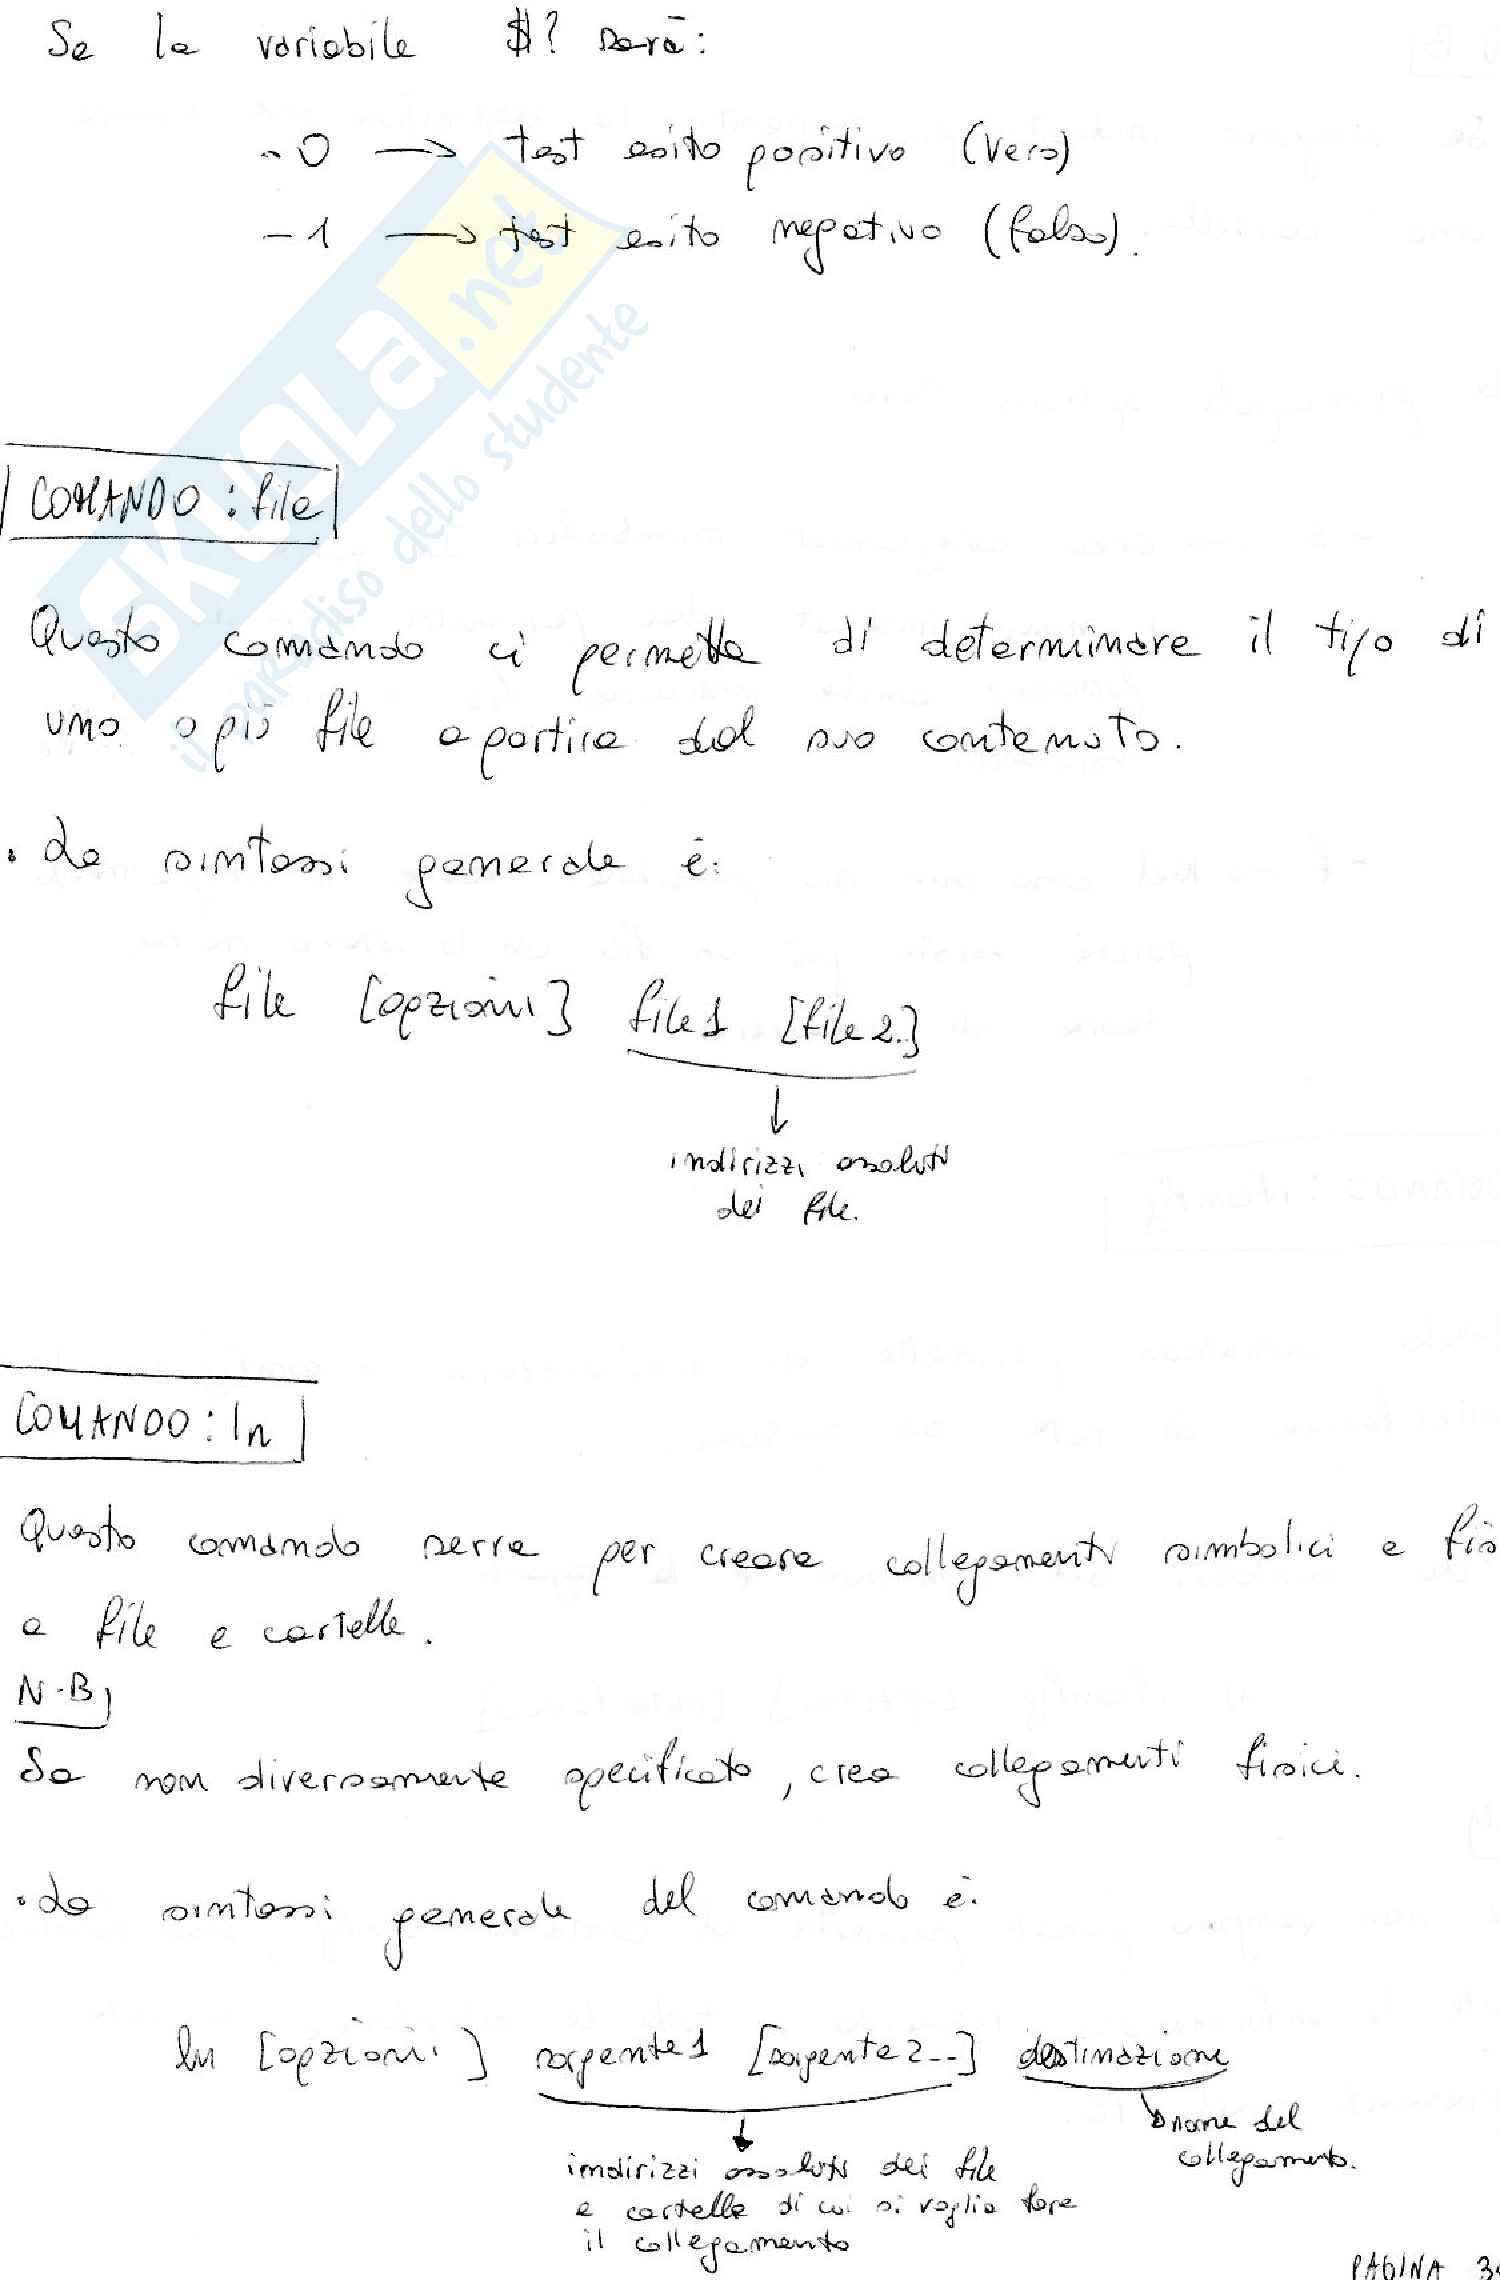 Se la variabile $? sarà:
- 0 → test esito positivo (Vero)
- 1 → test esito negativo (falso).
SKUOLA.net
il paradiso dello studente
COMANDO: file
Questo comando ci permette di determinare il tipo di
uno o più file a partire dal suo contenuto.
. La sintassi generale è:
file [opzioni] file1 [file2..]
indirizzi assoluti
dei file.
COMANDO: ln
Questo comando serve per creare collegamenti simbolici e fis
a file e cartelle.
N.B
Se non diversamente specificato, crea collegamenti fisici.
. La sintassi generale del comando è:
ln [opzioni] sorgente1 [sorgente2..] destinazione
nome del
collegamento.
indirizzi assoluti dei file
e cartelle di cui si voglia fare
il collegamento
PAGINA